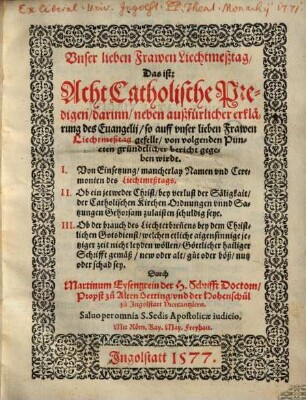 Ex Liberal. Univ. Ingolst. PP. Theat. Monachij 1771
Vnser lieben Frawen Liechtmeßtag/
Das ist:
Acht Catholische Pre-
digen/ darinn/ neben außfürlicher erklä-
rung des Euangelij/ so auff vnser lieben Frawen
Liechtmeßtag gefelt/ von volgenden Pun-
cten gründtlicher bericht gege-
ben wirdt.
I. Von Einsetzung/ mancherlay Namen vnd Cere-
monien des Liechtmeßtags.
II. Ob ein jetweder Christ/ bey verlust der Säligkait/
der Catholischen Kirchen Ordnungen vnnd Sa-
tzungen Gehorsam zulaisten schuldig seye.
III. Ob der brauch des Liechterbreñens bey dem Christ-
lichen Gotsdienst/ welchen etliche aigensinnige je-
tziger zeit nicht leyden wöllen/ Göttlicher hailiger
Schrifft gemäß/ new oder alt/ gůt oder böß/ nutz
oder schad sey.
Durch
Martinum Eysengrein der H. Schrifft Doctorn/
Propst zů Alten Oetting/ vnd der Hohenschůl
zů Ingolstatt Vicecantzlern.
Saluo per omnia S. Sedis Apostolicæ iudicio.
Mit Röm. Kay. May. Freyhait.
Ingolstatt 1577.